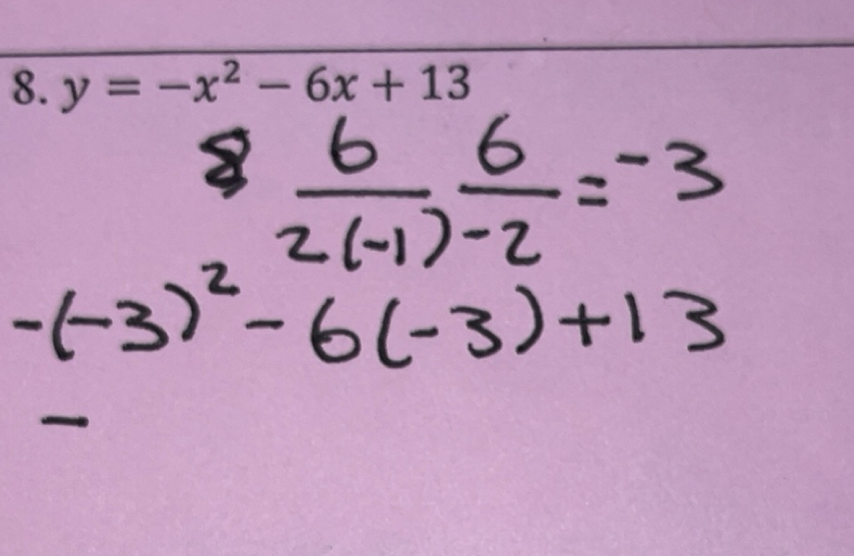 8. y = −x² − 6x + 13
8 6/2(-1) 6/-2 = -3
-(-3)² - 6(-3) + 13
-